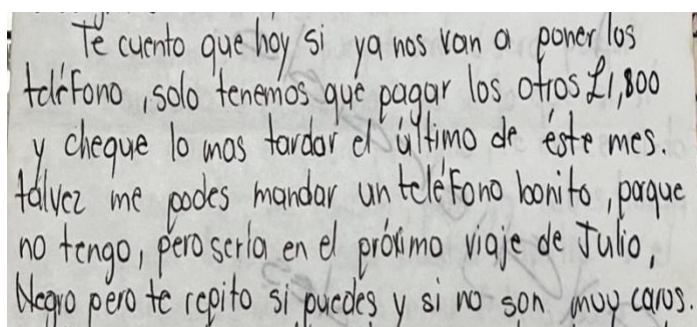 Te cuento que hoy si ya nos van a poner los
teléfono, solo tenemos que pagar los otros £1,800
y cheque lo mas tardar el último de éste mes.
tálvez me podes mandar un teléfono bonito, porque
no tengo, pero sería en el próximo viaje de Julio,
Negro pero te repito si puedes y si no son muy caros.